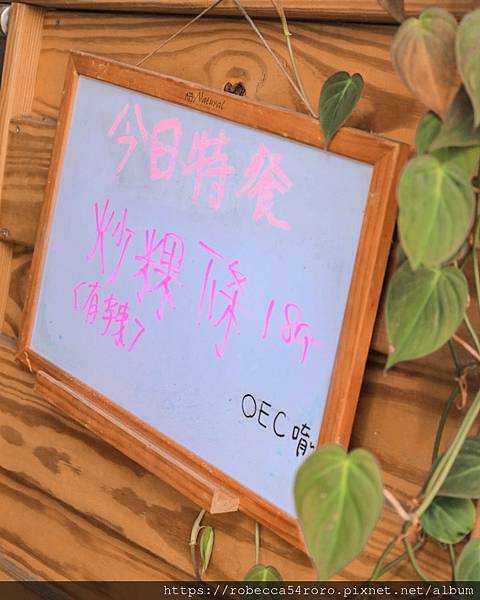 Natural
今日特餐
炒粿條 180
(有辣)
OEC 唷~
https://robecca54roro.pixnet.net/album